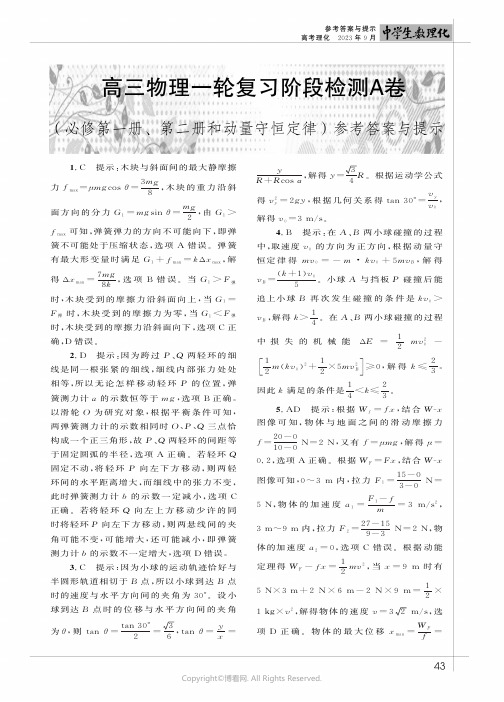 参考答案与提示
高考理化 2023年9月 中学生数理化
高三物理一轮复习阶段检测A卷
(必修第一册、第二册和动量守恒定律)参考答案与提示
1.C 提示:木块与斜面间的最大静摩擦
力 f_max=μmgcos θ=3mg/8,木块的重力沿斜
面方向的分力 G₁=mgsin θ=mg/2,由 G₁>
f_max 可知,弹簧弹力的方向不可能向下,即弹
簧不可能处于压缩状态,选项 A 错误。弹簧
有最大形变量时满足 G₁+f_max=kΔx_max,解
得 Δx_max=7mg/8k,选项 B 错误。当 G₁>F弹
时,木块受到的摩擦力沿斜面向上,当 G₁=
F弹 时,木块受到的摩擦力为零,当 G₁<F弹
时,木块受到的摩擦力沿斜面向下,选项 C 正
确,D 错误。
2.D 提示:因为跨过 P、Q 两轻环的细
线是同一根张紧的细线,细线内部张力处处
相等,所以无论怎样移动轻环 P 的位置,弹
簧测力计 a 的示数恒等于 mg,选项 B 正确。
以滑轮 O 为研究对象,根据平衡条件可知,
两弹簧测力计的示数相同时 O、P、Q 三点恰
构成一个正三角形,故 P、Q 两轻环的间距等
于固定圆弧的半径,选项 A 正确。若轻环 Q
固定不动,将轻环 P 向左下方移动,则两轻
环间的水平距离增大,而细线中的张力不变,
此时弹簧测力计 b 的示数一定减小,选项 C
正确。若将轻环 Q 向左上方移动少许的同
时将轻环 P 向左下方移动,则两悬线间的夹
角可能不变,可能增大,还可能减小,即弹簧
测力计 b 的示数不一定增大,选项 D 错误。
3.C 提示:因为小球的运动轨迹恰好与
半圆形轨道相切于 B 点,所以小球到达 B 点
时的速度与水平方向间的夹角为 30°。设小
球到达 B 点时的位移与水平方向间的夹角
为 θ,则 tan θ=tan 30°/2=√3/6,tan θ=y/x=
y/(R+Rcos α),解得 y=√3/4 R。根据运动学公式
得 v_y²=2gy,根据几何关系得 tan 30°=v_y/v₀,
解得 v₀=3 m/s。
4.B 提示:在 A、B 两小球碰撞的过程
中,取速度 v₀ 的方向为正方向,根据动量守
恒定律得 mv₀=-m·kv₀+5mv_B,解得
v_B=(k+1)v₀/5。小球 A 与挡板 P 碰撞后能
追上小球 B 再次发生碰撞的条件是 kv₀>
v_B,解得 k>1/4。在 A、B 两小球碰撞的过程
中损失的机械能 ΔE=1/2 mv₀²-
[1/2 m(kv₀)²+1/2×5mv_B²]≥0,解得 k≤2/3。
因此 k 满足的条件是 1/4<k≤2/3。
5.AD 提示:根据 W_f=fx,结合 W-x
图像可知,物体与地面之间的滑动摩擦力
f=(20-0)/(10-0) N=2 N,又有 f=μmg,解得 μ=
0.2,选项 A 正确。根据 W_F=Fx,结合 W-x
图像可知,0~3 m 内,拉力 F₁=(15-0)/(3-0) N=
5 N,物体的加速度 a₁=(F₁-f)/m=3 m/s²,
3 m~9 m 内,拉力 F₂=(27-15)/(9-3) N=2 N,物
体的加速度 a₂=0,选项 C 错误。根据动能
定理得 W_F-fx=1/2 mv²,当 x=9 m 时有
5 N×3 m+2 N×6 m-2 N×9 m=1/2×
1 kg×v²,解得物体的速度 v=3√2 m/s,选
项 D 正确。物体的最大位移 x_max=W_F/f=
43
Copyright©博看网. All Rights Reserved.